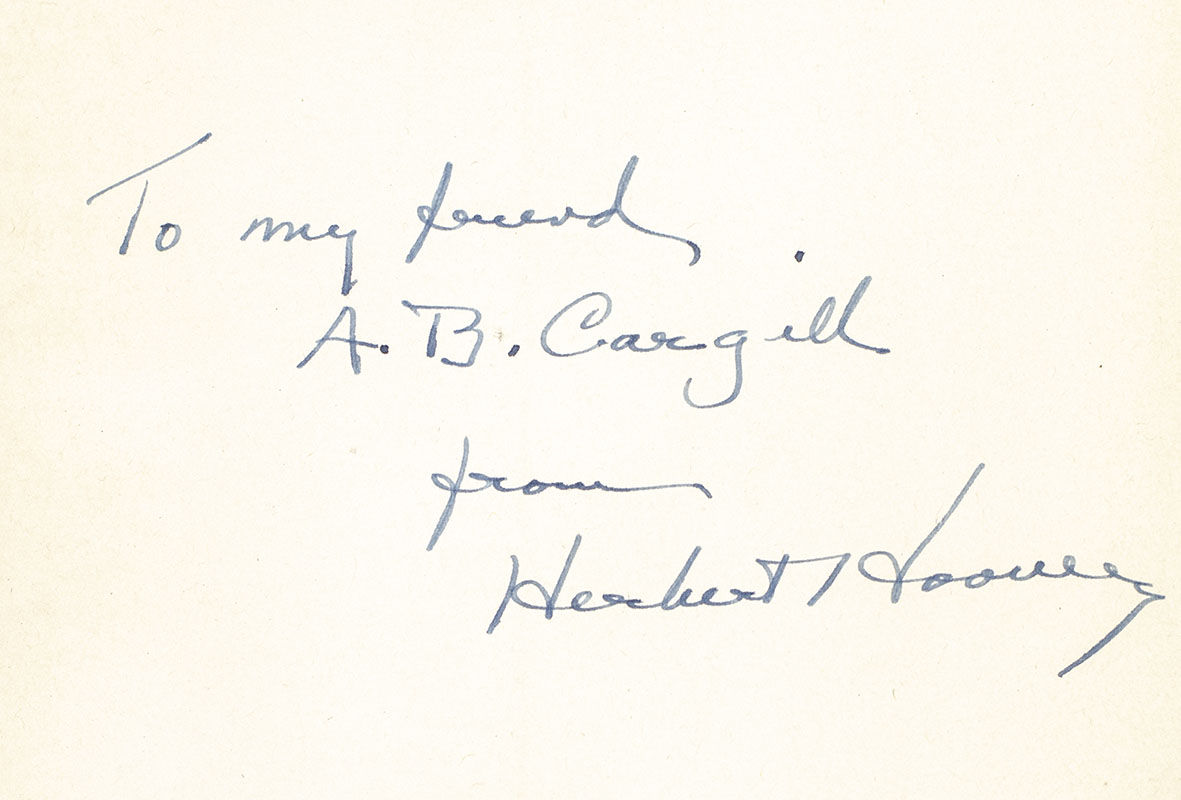 To my friend
A. B. Cargill
from
Herbert Hoover